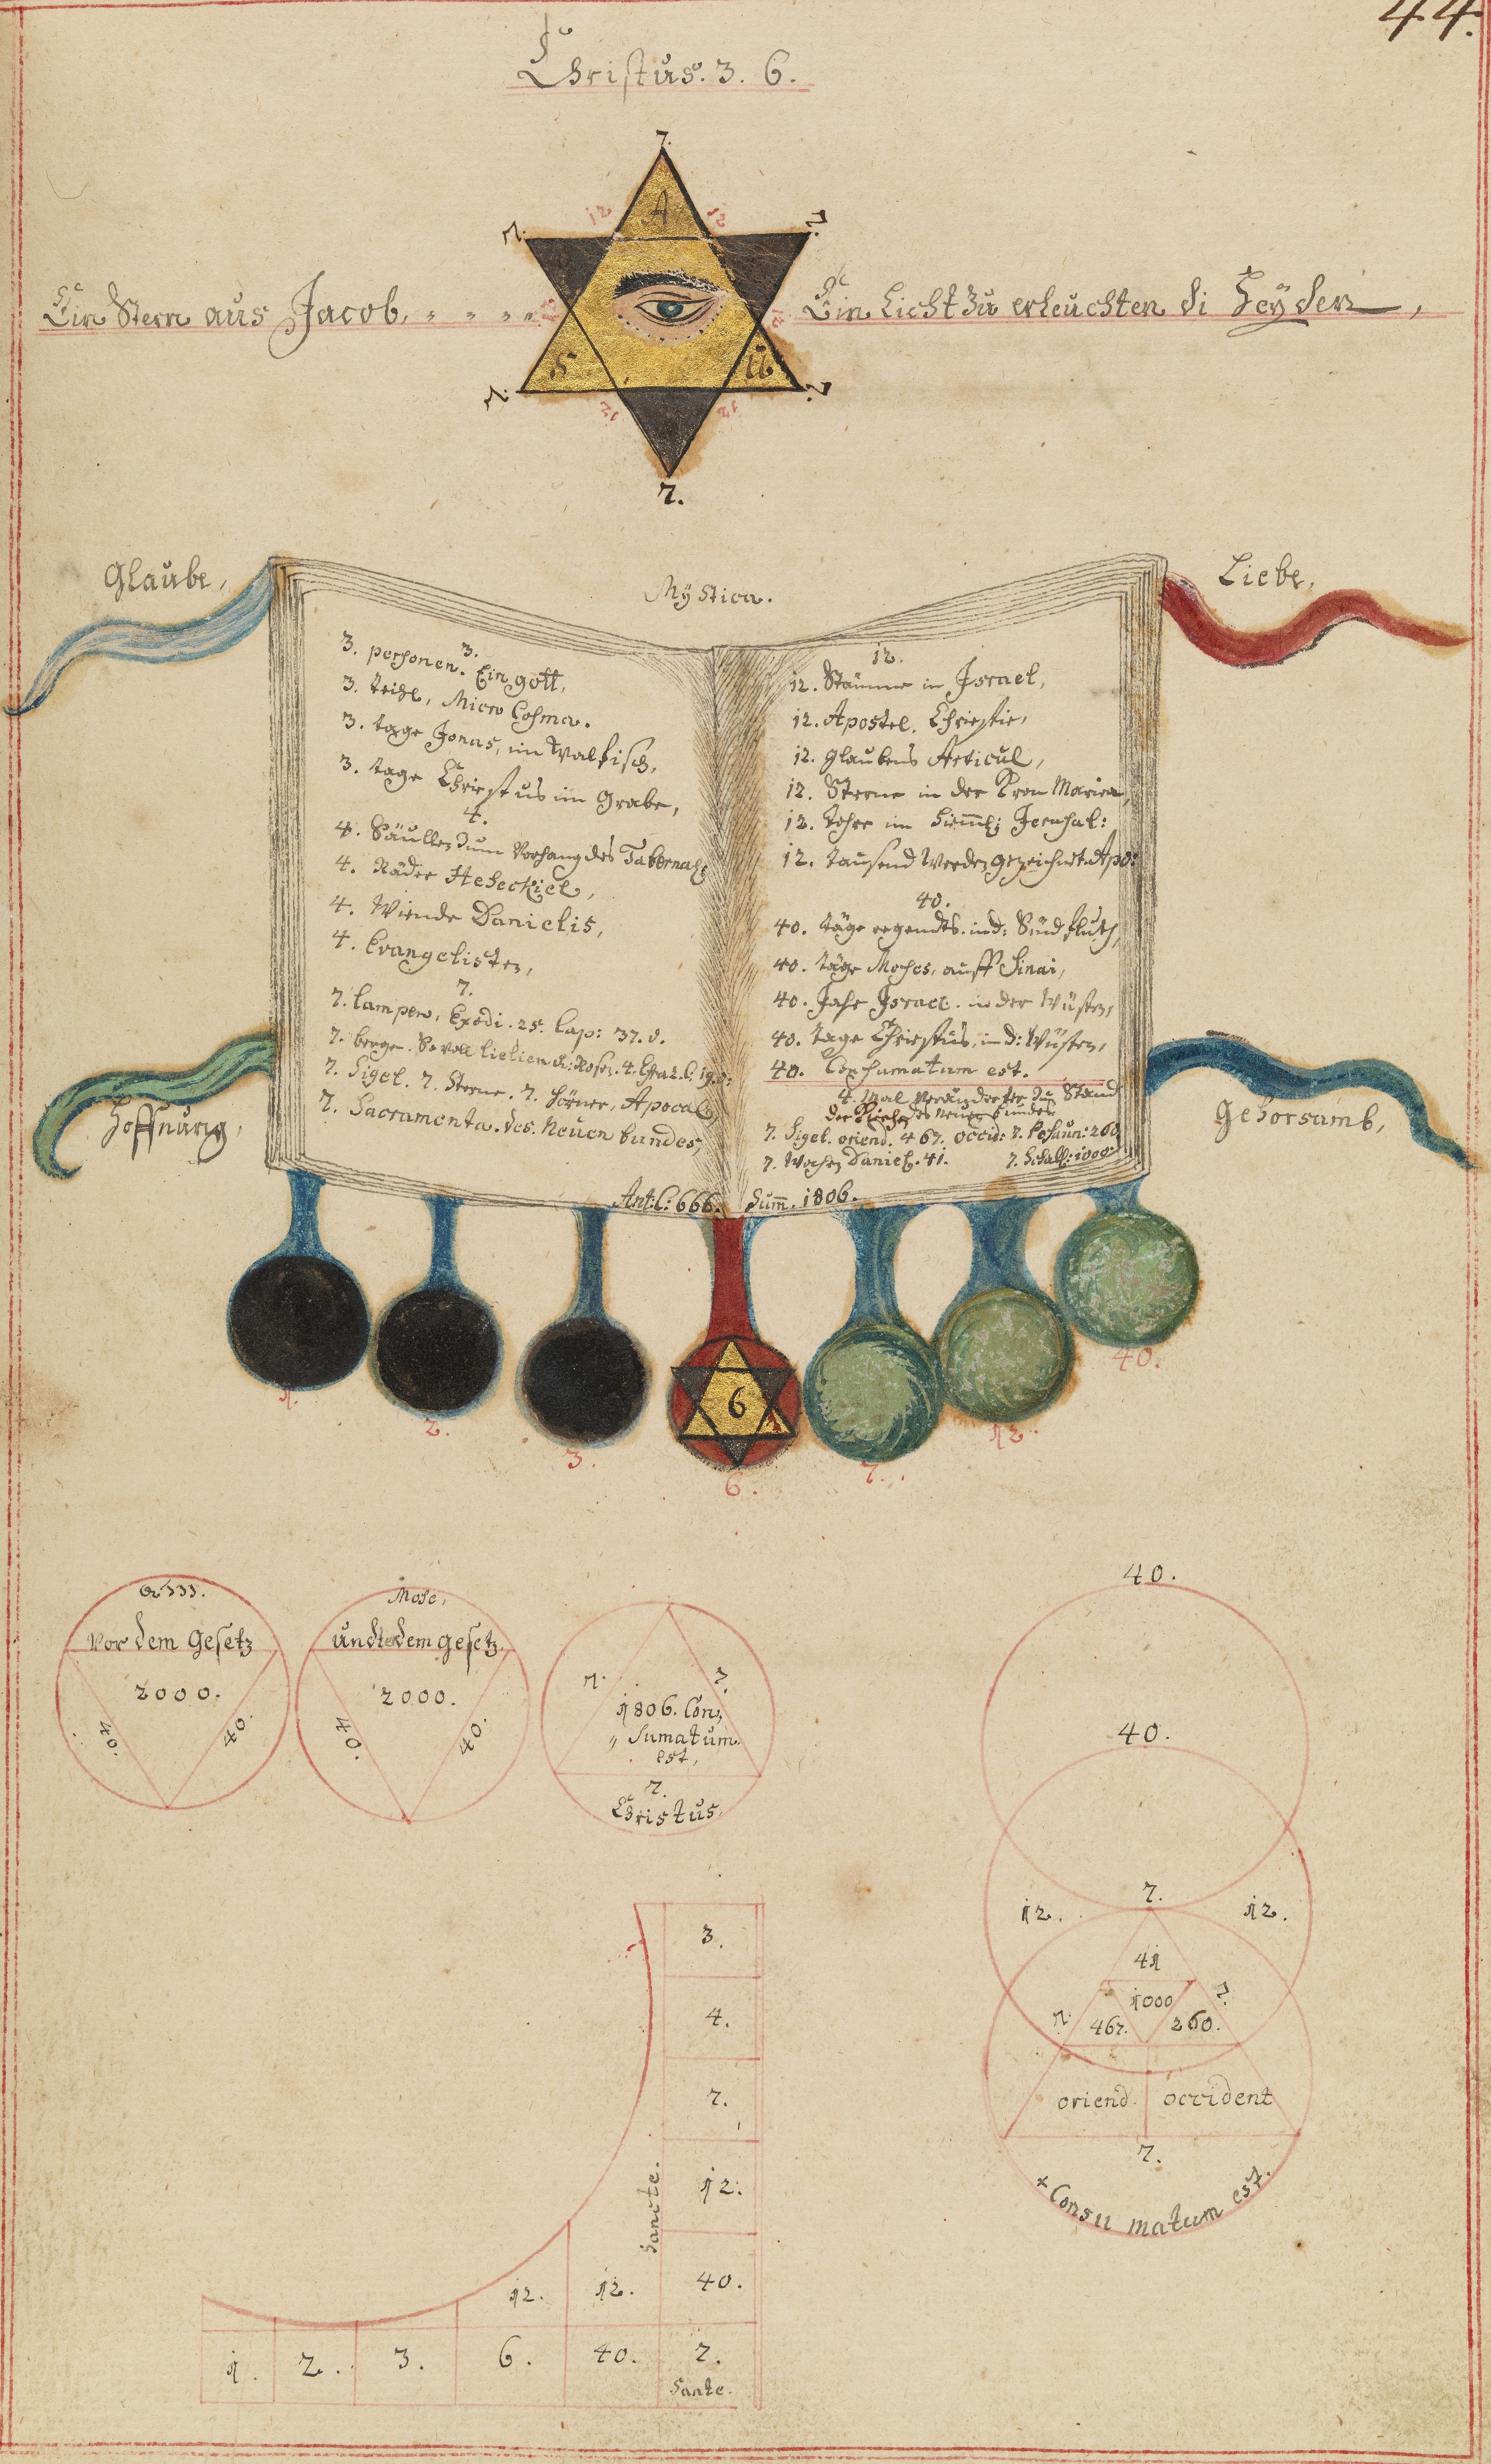 44.
Christus. 3. 6.
7.
12 A 12
7. 7.
Ein Stern aus Jacob,
Ein Licht zu erleuchten di Heyden,
12 12
S U
7. 7.
12 12
7.
Glaube,
Mÿstica.
Liebe,
3.
3. personen. Ein gott,
3. theile, Micro Cosma.
3. tage Jonas, im Walfisch,
3. tage Christus im Grabe,
4.
4. Säullen zum Vorhang des Tabernach:
4. Räder Heseckiel,
4. Winde Danielis,
4. Evangelisten,
7.
7. lampen, Exodi. 25. Cap: 37. v.
7. berge. So voll lielien
7. Sigel. 7. Sterne. 7. hörner, Apocal:
7. Sacramenta. des. Neuen bundes,
12.
12. Stämme in Israel,
12. Apostel. Christie,
12. glaubens Articul,
12. Sterne in der Kron Mariea,
12. Thore im himml: Jerusal:
12. tausend Werden gezeichnet. Apo:
40.
40. täge regendts. in d: Sündfluth,
40. täge Moses, auff Sinai,
40. Jahr Israel. in der Wüsten,
40. tage Christus, in d: Wüsten,
40. Consumatum est.
4. Mal
der Kirchen des neuen bundes
7. Sigel. oriend. 467. occid: 7. Posaun: 260
7. Wochen Daniel. 41. 7. Schall: 1000.
Ant: C: 666. Sum̄. 1806.
Hoffnung,
Gehorsamb,
1.
2.
3.
6
6.
7.
12.
40.
Vor dem gesetz
2000.
40. 40.
Mose,
undter dem gesetz.
2000.
40. 40.
7. 7.
1806. Con,
,, sumatum.
est,
7.
Christus.
40.
40.
7.
12. 12.
41
1000
7. 7.
467. 260.
oriend. occident
7.
+ Consu matum est.
3.
4.
7.
12.
Sancte.
12. 12. 40.
1. 2. 3. 6. 40. 7.
Sante.